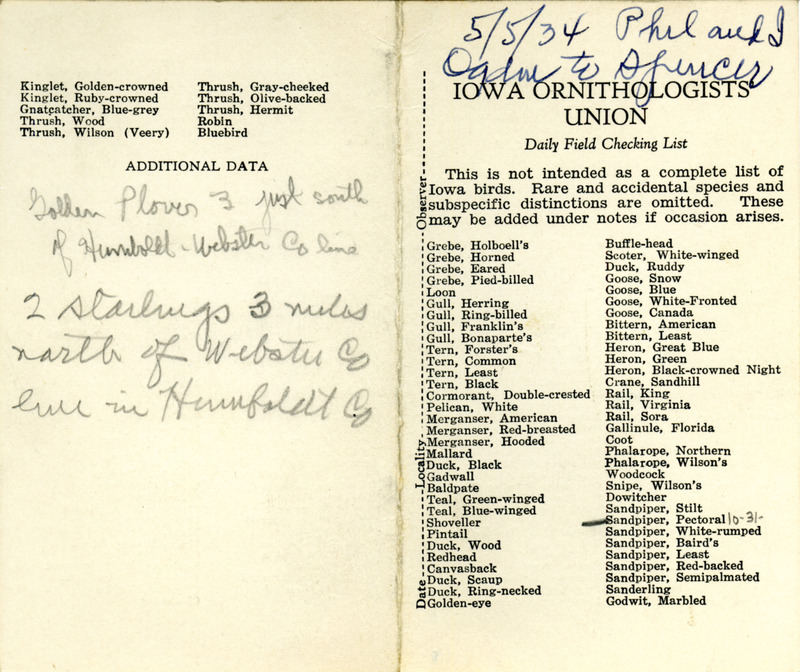 Kinglet, Golden-crowned
Kinglet, Ruby-crowned
Gnatcatcher, Blue-grey
Thrush, Wood
Thrush, Wilson (Veery)
Thrush, Gray-cheeked
Thrush, Olive-backed
Thrush, Hermit
Robin
Bluebird
ADDITIONAL DATA
Golden Plover 3 just south
of Humboldt-Webster Co line
2 starlings 3 miles
north of Webster Co
line in Humboldt Co
5/5/34 Phil and I
Ogden to Spencer
IOWA ORNITHOLOGISTS'
UNION
Daily Field Checking List
This is not intended as a complete list of
Iowa birds. Rare and accidental species and
subspecific distinctions are omitted. These
may be added under notes if occasion arises.
Date Locality Observer
Grebe, Holboell's
Grebe, Horned
Grebe, Eared
Grebe, Pied-billed
Loon
Gull, Herring
Gull, Ring-billed
Gull, Franklin's
Gull, Bonaparte's
Tern, Forster's
Tern, Common
Tern, Least
Tern, Black
Cormorant, Double-crested
Pelican, White
Merganser, American
Merganser, Red-breasted
Merganser, Hooded
Mallard
Duck, Black
Gadwall
Baldpate
Teal, Green-winged
Teal, Blue-winged
Shoveller
Pintail
Duck, Wood
Redhead
Canvasback
Duck, Scaup
Duck, Ring-necked
Golden-eye
Buffle-head
Scoter, White-winged
Duck, Ruddy
Goose, Snow
Goose, Blue
Goose, White-Fronted
Goose, Canada
Bittern, American
Bittern, Least
Heron, Great Blue
Heron, Green
Heron, Black-crowned Night
Crane, Sandhill
Rail, King
Rail, Virginia
Rail, Sora
Gallinule, Florida
Coot
Phalarope, Northern
Phalarope, Wilson's
Woodcock
Snipe, Wilson's
Dowitcher
Sandpiper, Stilt
Sandpiper, Pectoral 10-31-
Sandpiper, White-rumped
Sandpiper, Baird's
Sandpiper, Least
Sandpiper, Red-backed
Sandpiper, Semipalmated
Sanderling
Godwit, Marbled